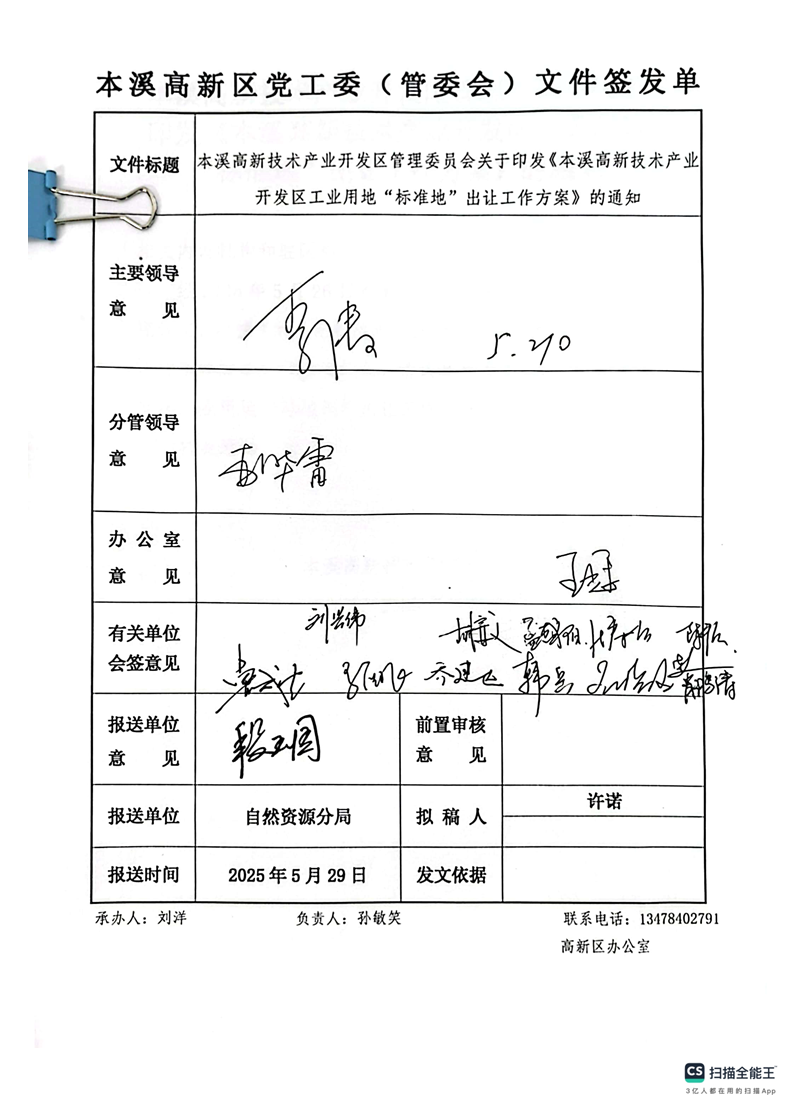 本溪高新区党工委（管委会）文件签发单
文件标题
本溪高新技术产业开发区管理委员会关于印发《本溪高新技术产业
开发区工业用地“标准地”出让工作方案》的通知
主要领导
意 见
分管领导
意 见
办公室
意 见
有关单位
会签意见
刘兴伟
报送单位
意 见
前置审核
意 见
报送单位
自然资源分局
拟稿人
许诺
报送时间
2025年5月29日
发文依据
承办人：刘洋
负责人：孙敏笑
联系电话：13478402791
高新区办公室
CS 扫描全能王
3亿人都在用的扫描App